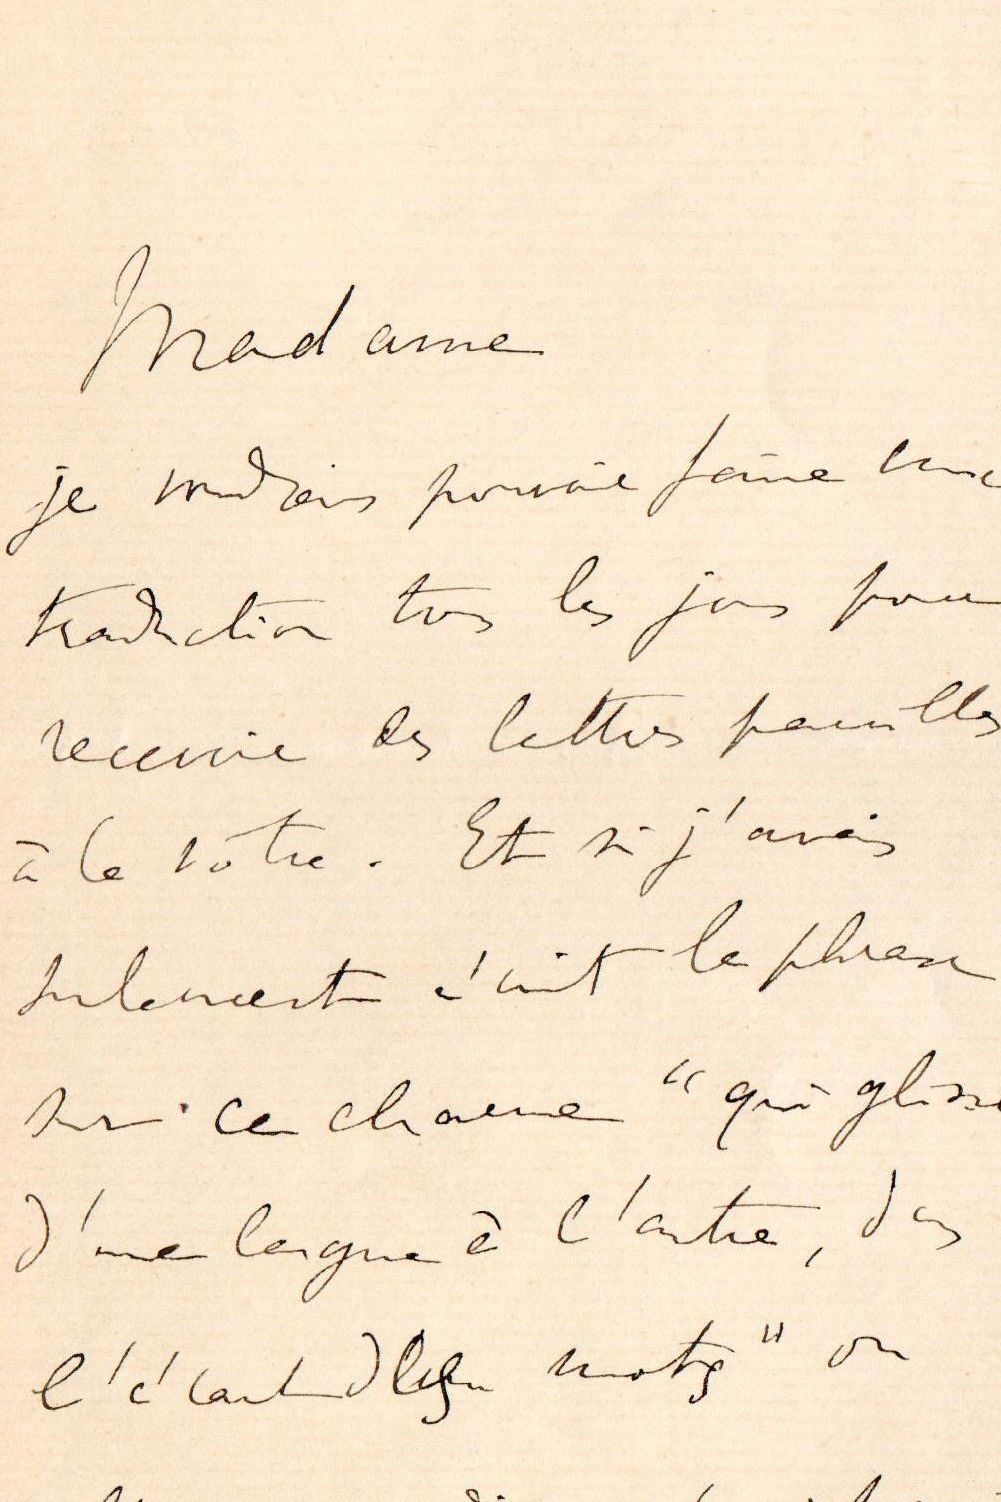 Madame
je voudrais pouvoir faire une
traduction tous les jours pour
recevoir des lettres pareilles
à la vôtre. Et si j'avais
seulement écrit la phrase
sur ce charme "qui glisse
d'une langue à l'autre, dans
l'écart des mots" on